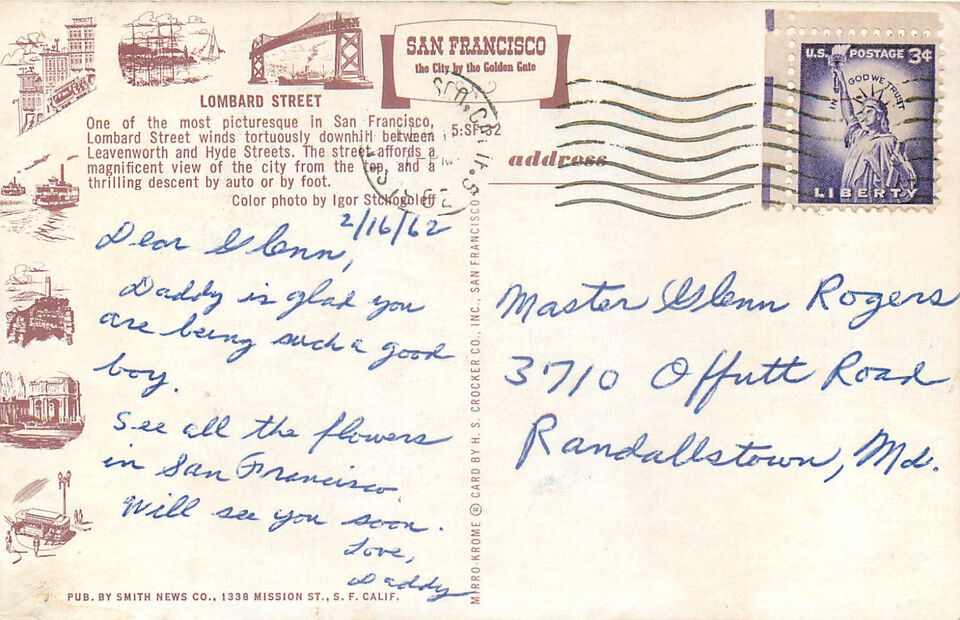 SAN FRANCISCO
the City by the Golden Gate
LOMBARD STREET
One of the most picturesque in San Francisco,
Lombard Street winds tortuously downhill between
Leavenworth and Hyde Streets. The street affords a
magnificent view of the city from the top, and a
thrilling descent by auto or by foot.
Color photo by Igor Stchogoleff
2/16/62
Dear Glenn,
Daddy is glad you
are being such a good
boy.
See all the flowers
in San Francisco.
Will see you soon.
Love,
Daddy
PUB. BY SMITH NEWS CO., 1338 MISSION ST., S. F. CALIF.
MIRRO-KROME ® CARD BY H. S. CROCKER CO., INC., SAN FRANCISCO
address
U.S. POSTAGE 3¢
IN GOD WE TRUST
LIBERTY
Master Glenn Rogers
3710 Offutt Road
Randallstown, Md.